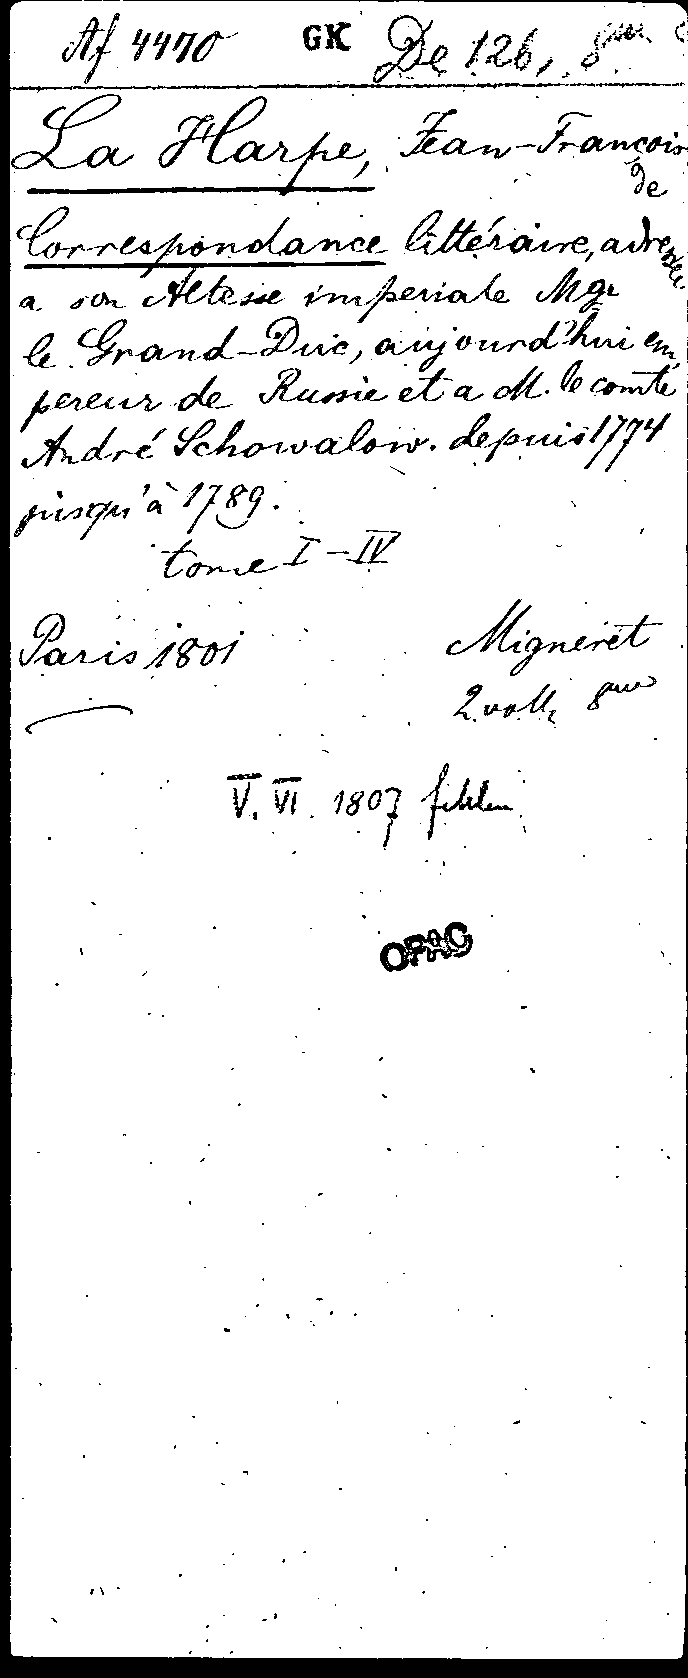 Af 4470 GK De 126, 8vo
La Harpe, Jean-François
de
Correspondance littéraire, adressée
a son Altesse imperiale Mgr
le Grand-Duc, aujourd'hui em
pereur de Russie et a M. le comte
André Schowalow. depuis 1774
jusqu'à 1789.
tome I-IV
Paris 1801 Migneret
2 voll, 8vo
V. VI. 1807 fehlen
OPAC